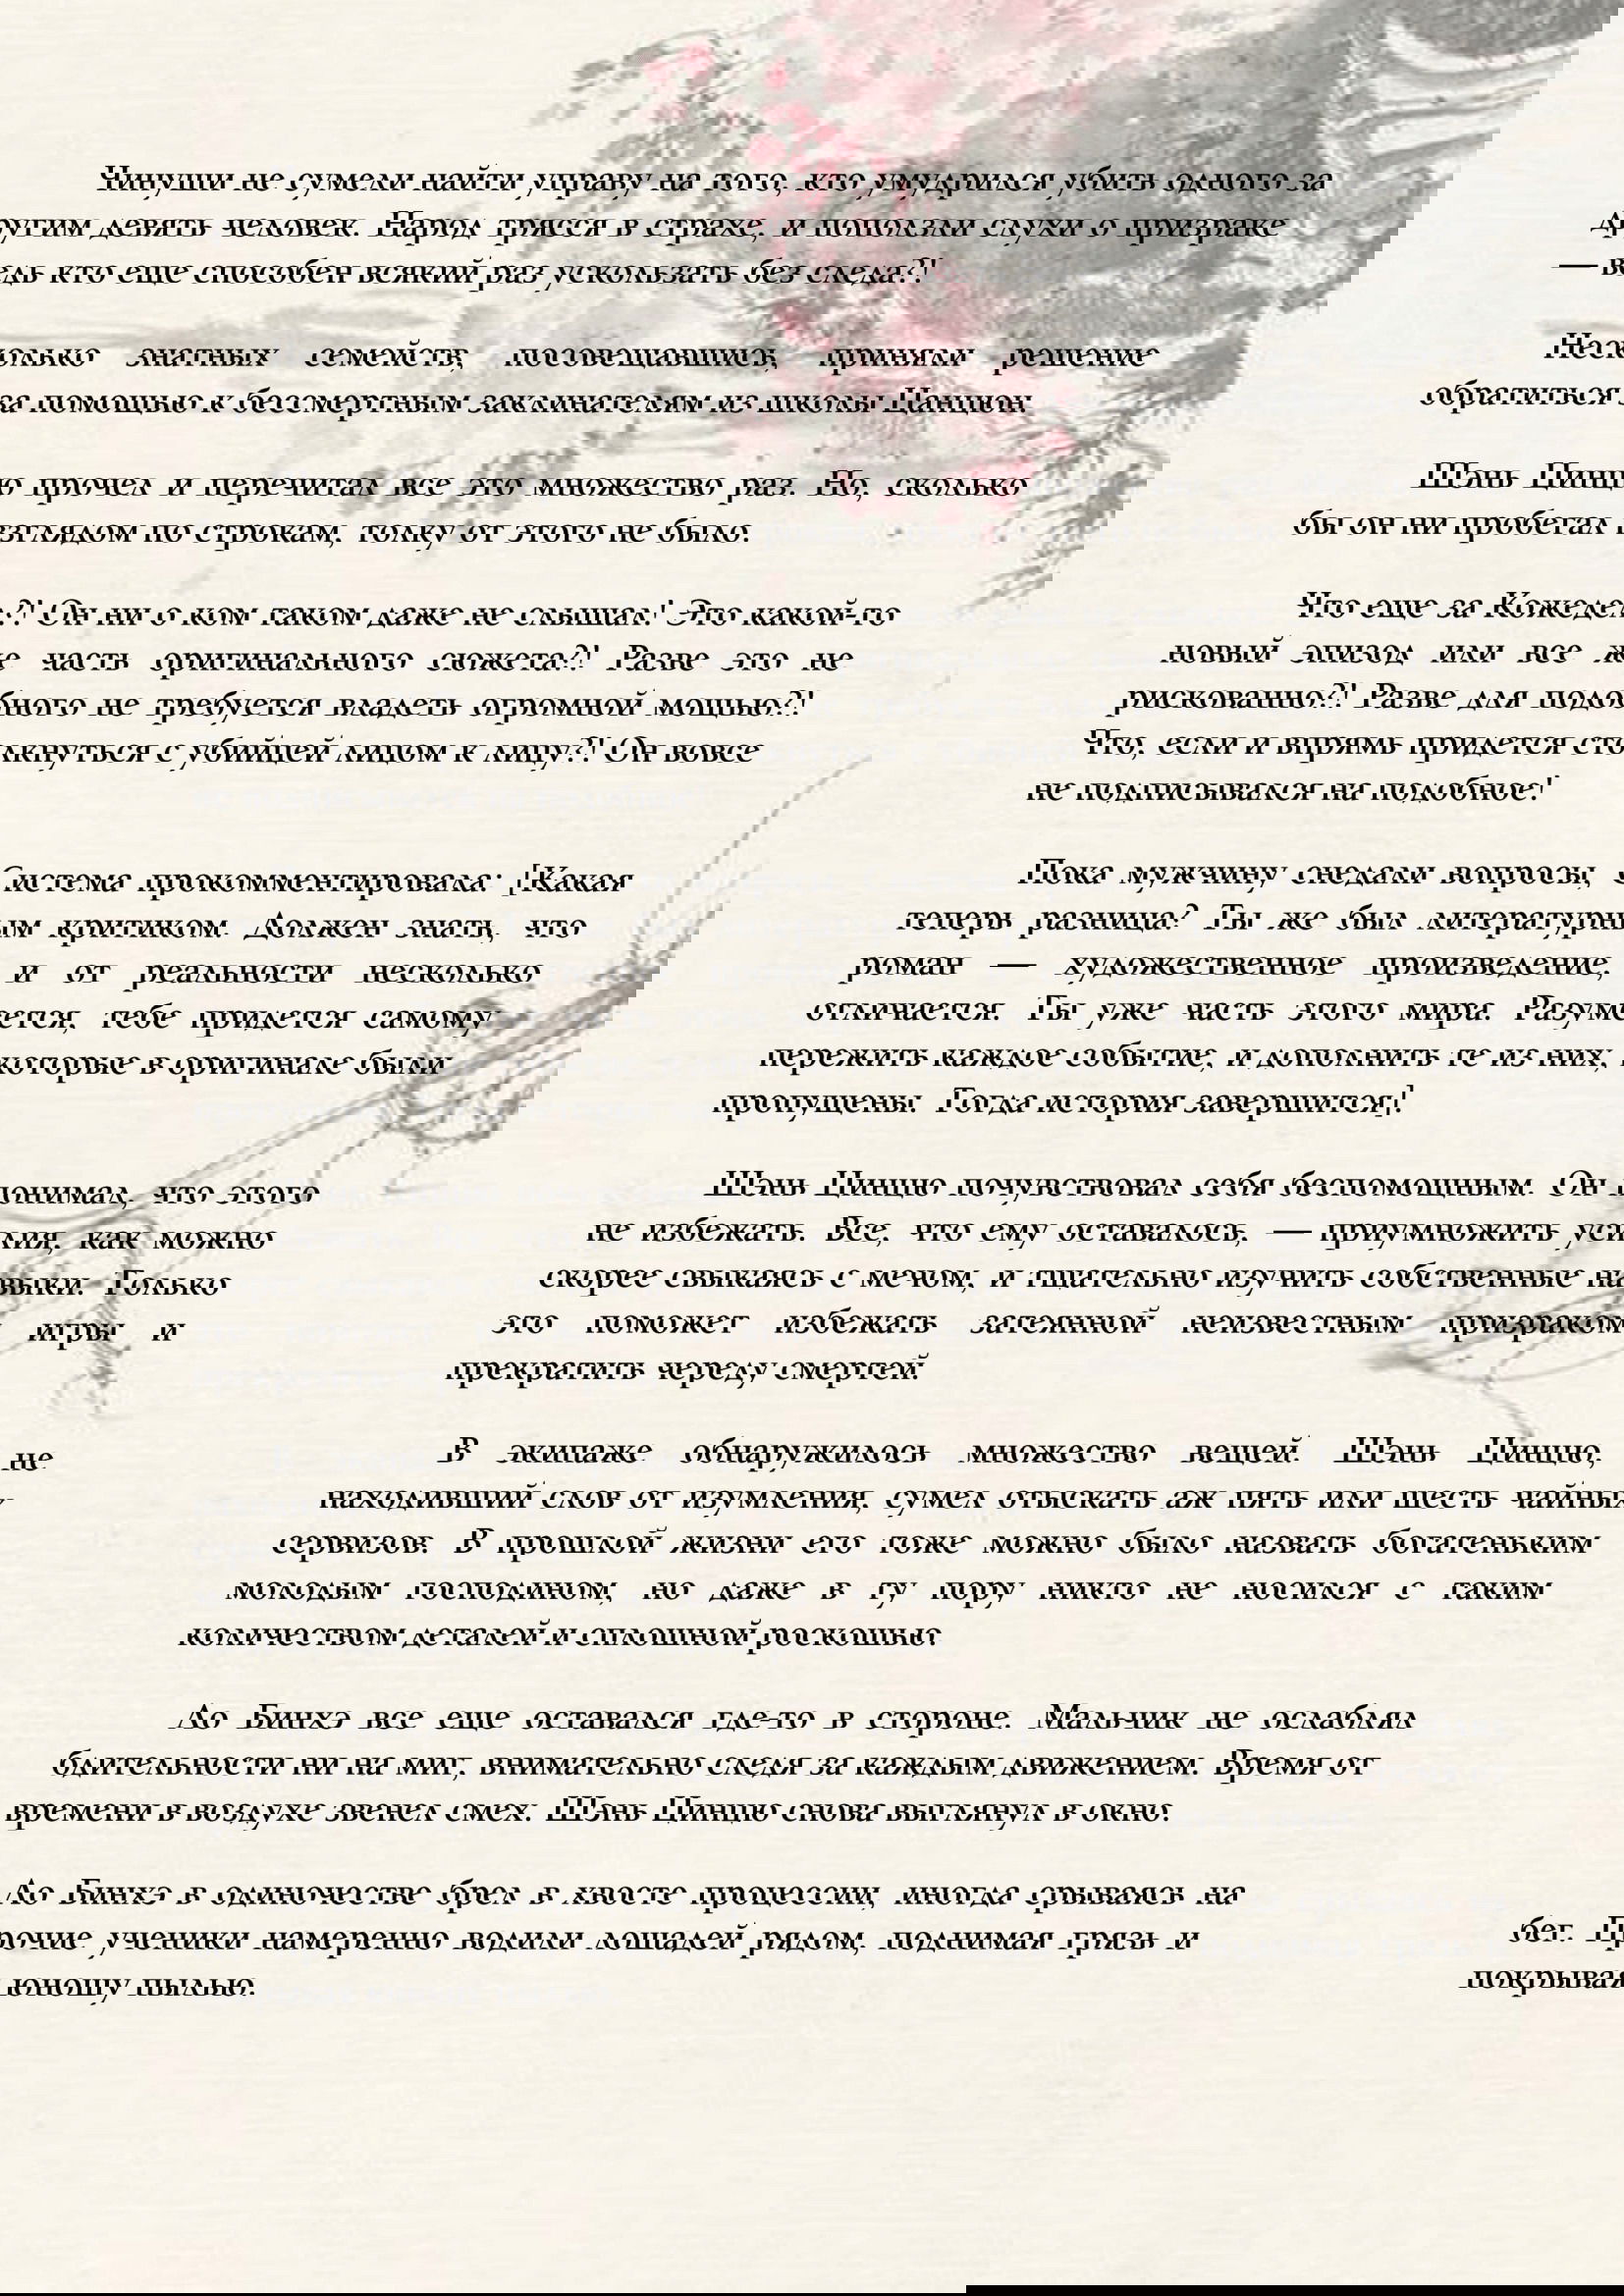 Чинуши не сумели найти управу на того, кто умудрился убить одного за
другим девять человек. Народ трясся в страхе, и поползли слухи о призраке
— ведь кто еще способен всякий раз ускользать без следа?!
Несколько знатных семейств, посовещавшись, приняли решение
обратиться за помощью к бессмертным заклинателям из школы Цанцюн.
Шэнь Цинцю прочел и перечитал все это множество раз. Но, сколько
бы он ни пробегал взглядом по строкам, толку от этого не было.
Что еще за Кожедел?! Он ни о ком таком даже не слышал! Это какой-то
новый эпизод или все же часть оригинального сюжета?! Разве это не
рискованно?! Разве для подобного не требуется владеть огромной мощью?!
Что, если и впрямь придется столкнуться с убийцей лицом к лицу?! Он вовсе
не подписывался на подобное!
Пока мужчину снедали вопросы, Система прокомментировала: [Какая
теперь разница? Ты же был литературным критиком. Должен знать, что
роман — художественное произведение, и от реальности несколько
отличается. Ты уже часть этого мира. Разумеется, тебе придется самому
пережить каждое событие, и дополнить те из них, которые в оригинале были
пропущены. Тогда история завершится]!
Шэнь Цинцю почувствовал себя беспомощным. Он понимал, что этого
не избежать. Все, что ему оставалось, — приумножить усилия, как можно
скорее свыкаясь с мечом, и тщательно изучить собственные навыки. Только
это поможет избежать затеянной неизвестным призраком игры и
прекратить череду смертей.
В экипаже обнаружилось множество вещей. Шэнь Цинцю, не
находивший слов от изумления, сумел отыскать аж пять или шесть чайных
сервизов. В прошлой жизни его тоже можно было назвать богатеньким
молодым господином, но даже в ту пору никто не носился с таким
количеством деталей и сплошной роскошью.
Ло Бинхэ все еще оставался где-то в стороне. Мальчик не ослаблял
бдительности ни на миг, внимательно следя за каждым движением. Время от
времени в воздухе звенел смех. Шэнь Цинцю снова выглянул в окно.
Ло Бинхэ в одиночестве брел в хвосте процессии, иногда срываясь на
бег. Прочие ученики намеренно водили лошадей рядом, поднимая грязь и
покрывая юношу пылью.